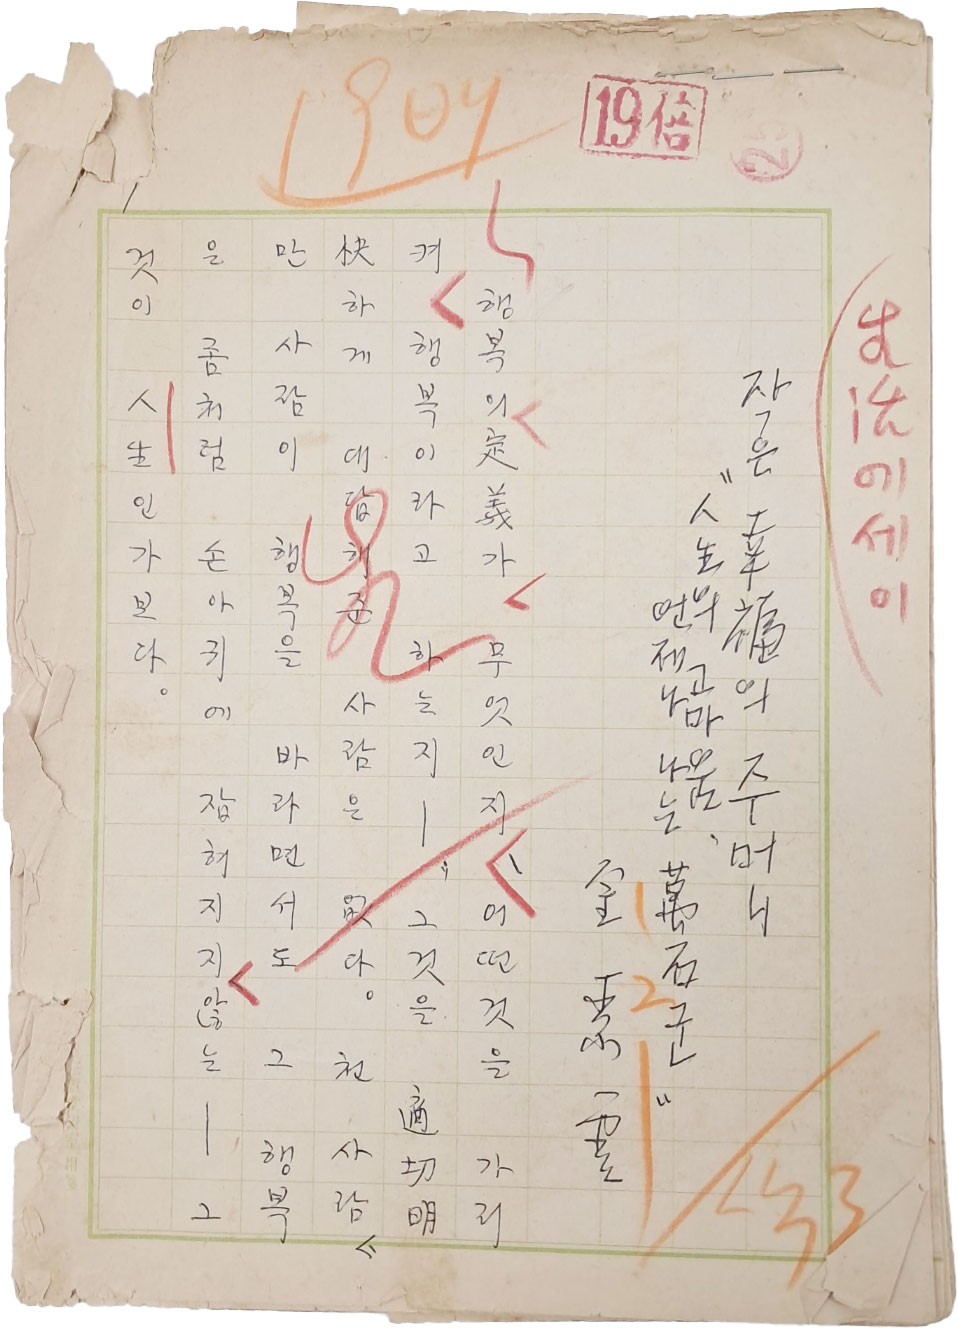 19倍
生活에세이
작은 幸福의 주머니
“人生의 고마움,
언제나 나는 萬石군”
행복의 定義가 무엇인지, 어떤 것을 가리
켜 행복이라고 하는지—” 그것을 適切明
快하게 대답해준 사람은 없다. 천 사람《
만 사람이 행복을 바라면서도 그 행복
은 좀처럼 손아귀에 잡혀지지 않는— 그
것이 人生인가 보다。